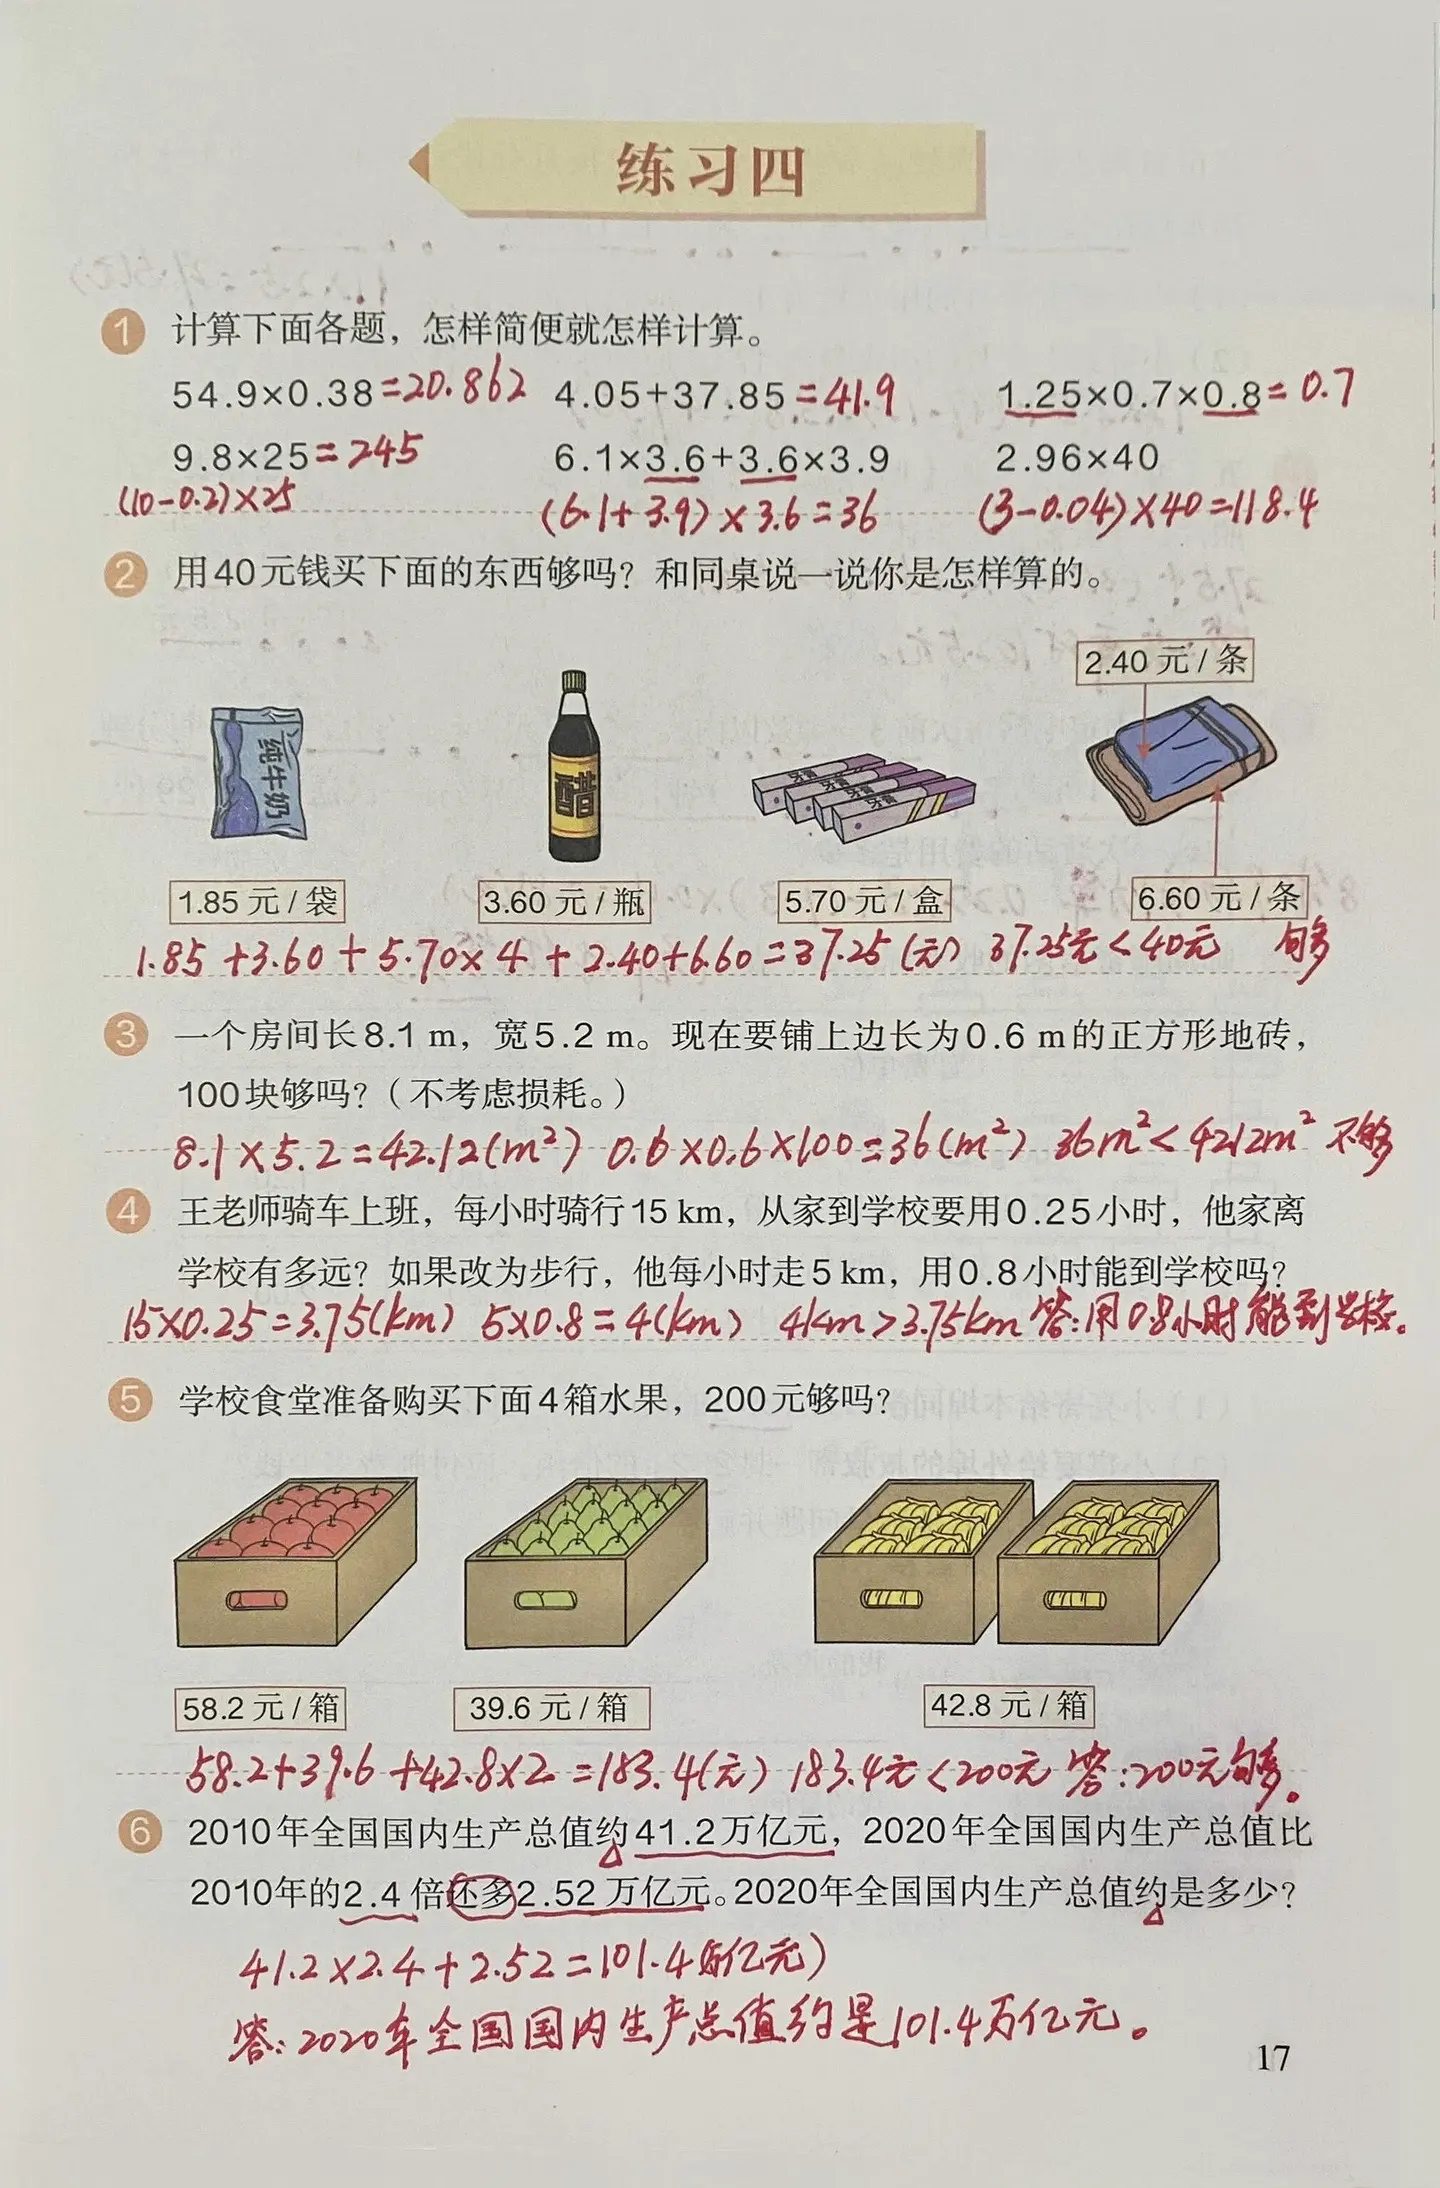 练习四
1 计算下面各题，怎样简便就怎样计算。
54.9×0.38=20.862 4.05+37.85=41.9 1.25×0.7×0.8=0.7
9.8×25=245 6.1×3.6+3.6×3.9 2.96×40
(10-0.2)×25 (6.1+3.9)×3.6=36 (3-0.04)×40=118.4
2 用40元钱买下面的东西够吗？和同桌说一说你是怎样算的。
2.40元/条
纯牛奶
醋
1.85元/袋 3.60元/瓶 5.70元/盒 6.60元/条
1.85+3.60+5.70×4+2.40+6.60=37.25(元) 37.25元<40元 够
3 一个房间长8.1 m，宽5.2 m。现在要铺上边长为0.6 m的正方形地砖，
100块够吗？（不考虑损耗。）
8.1×5.2=42.12(m²) 0.6×0.6×100=36(m²) 36m²<42.12m² 不够
4 王老师骑车上班，每小时骑行15 km，从家到学校要用0.25小时，他家离
学校有多远？如果改为步行，他每小时走5 km，用0.8小时能到学校吗？
15×0.25=3.75(km) 5×0.8=4(km) 4km>3.75km 答：用0.8小时能到学校。
5 学校食堂准备购买下面4箱水果，200元够吗？
58.2元/箱 39.6元/箱 42.8元/箱
58.2+39.6+42.8×2=183.4(元) 183.4元<200元 答：200元够。
6 2010年全国国内生产总值约41.2万亿元，2020年全国国内生产总值比
2010年的2.4倍还多2.52万亿元。2020年全国国内生产总值约是多少？
41.2×2.4+2.52=101.4(万亿元)
答：2020年全国国内生产总值约是101.4万亿元。
17